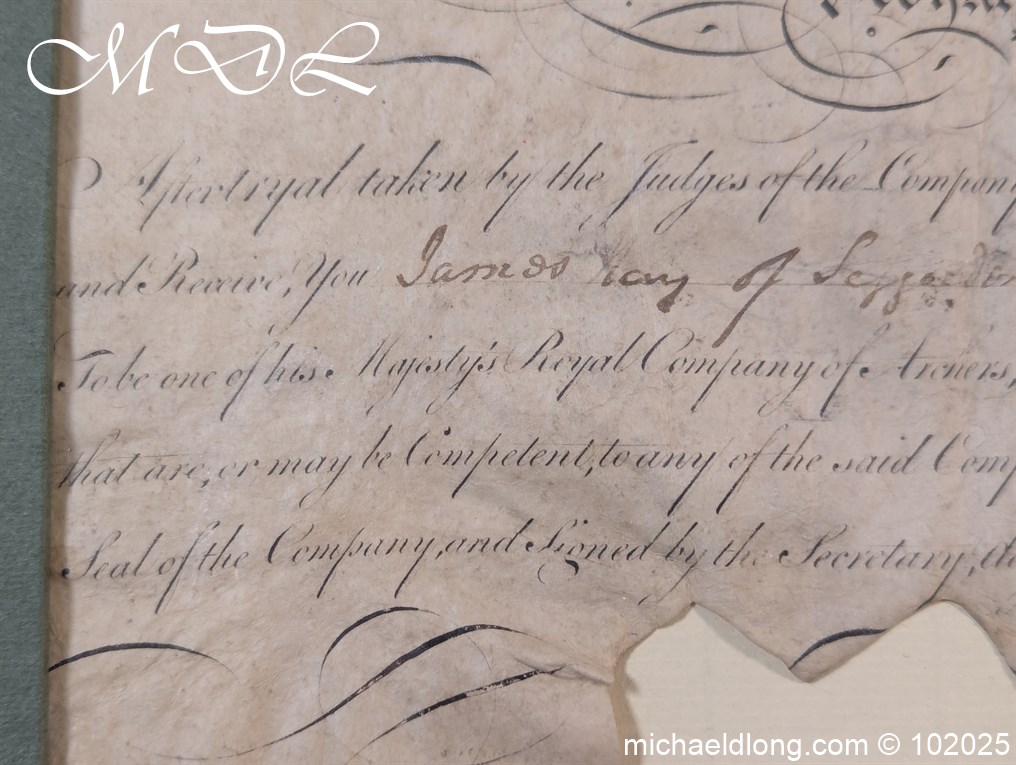 MDL
After tryal taken by the Judges of the Company
and Receive, You James Hay of
To be one of his Majesty's Royal Company of Archers,
that are, or may be Competent, to any of the said Comp
Seal of the Company, and Signed by the Secretary,
michaeldlong.com © 102025